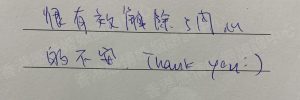 很有效解除 5内 m
的不安. Thank you:)